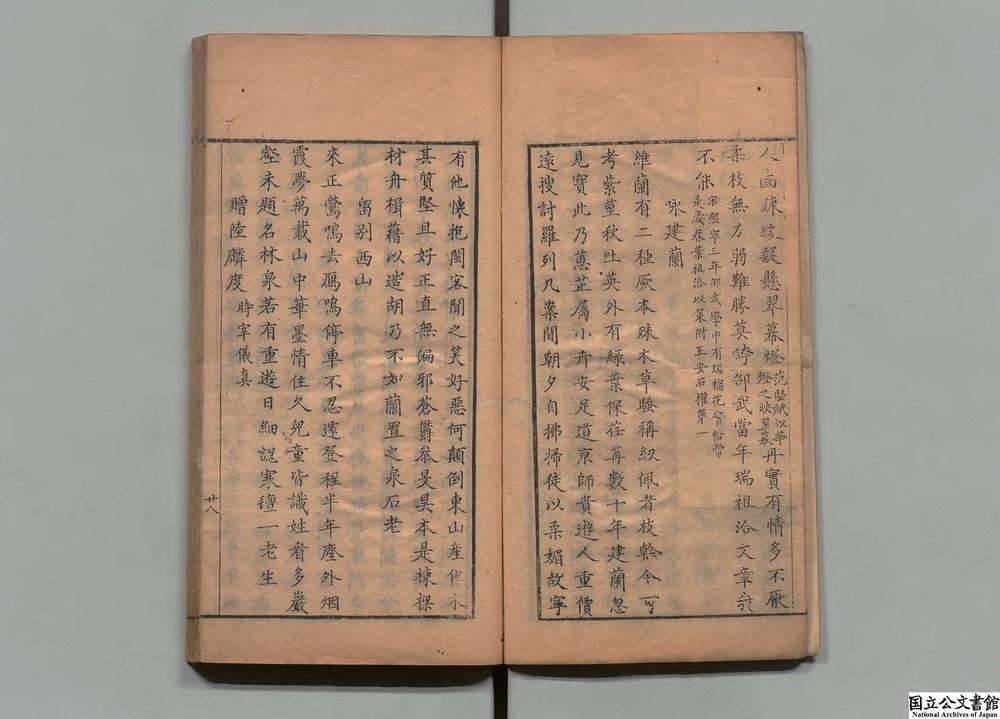 疎綴疑懸翠幕燈范堅賦以華燈之映翠幕丹實有情多不厭
柔枝無力弱難勝莫誇邵武當年瑞祖洽文章
不能宋熙寧三年邵武學中有瑞榴花
是歲春葉祖洽以策附王安石擢第一
咏建蘭
維蘭有二種厥本殊木草騷稱紉佩者枝榦今可
考紫莖秋吐英外有綠葉保荏苒數十年建蘭忽
見寶此乃蕙芷屬小卉安足道京師貴遊人重價
遠搜討羅列几案間朝夕自拂掃徒以柔媚故寧
有他懷抱閩客聞之笑好惡何顛倒東山產佳木
其質堅且好正直無偏邪蒼欝叅旻昊本是棟樑
材舟楫藉以造胡乃不如蘭置之泉石老
留別西山
來正鶯鳴去鴈鳴停車不忍遽登程半年塵外烟
霞夢萬載山中筆墨情住久兒童皆識姓看多巖
壑未題名林泉若有重遊日細認寒氊一老生
贈陸麟度時宰儀真
廿八
国立公文書館
National Archives of Japan